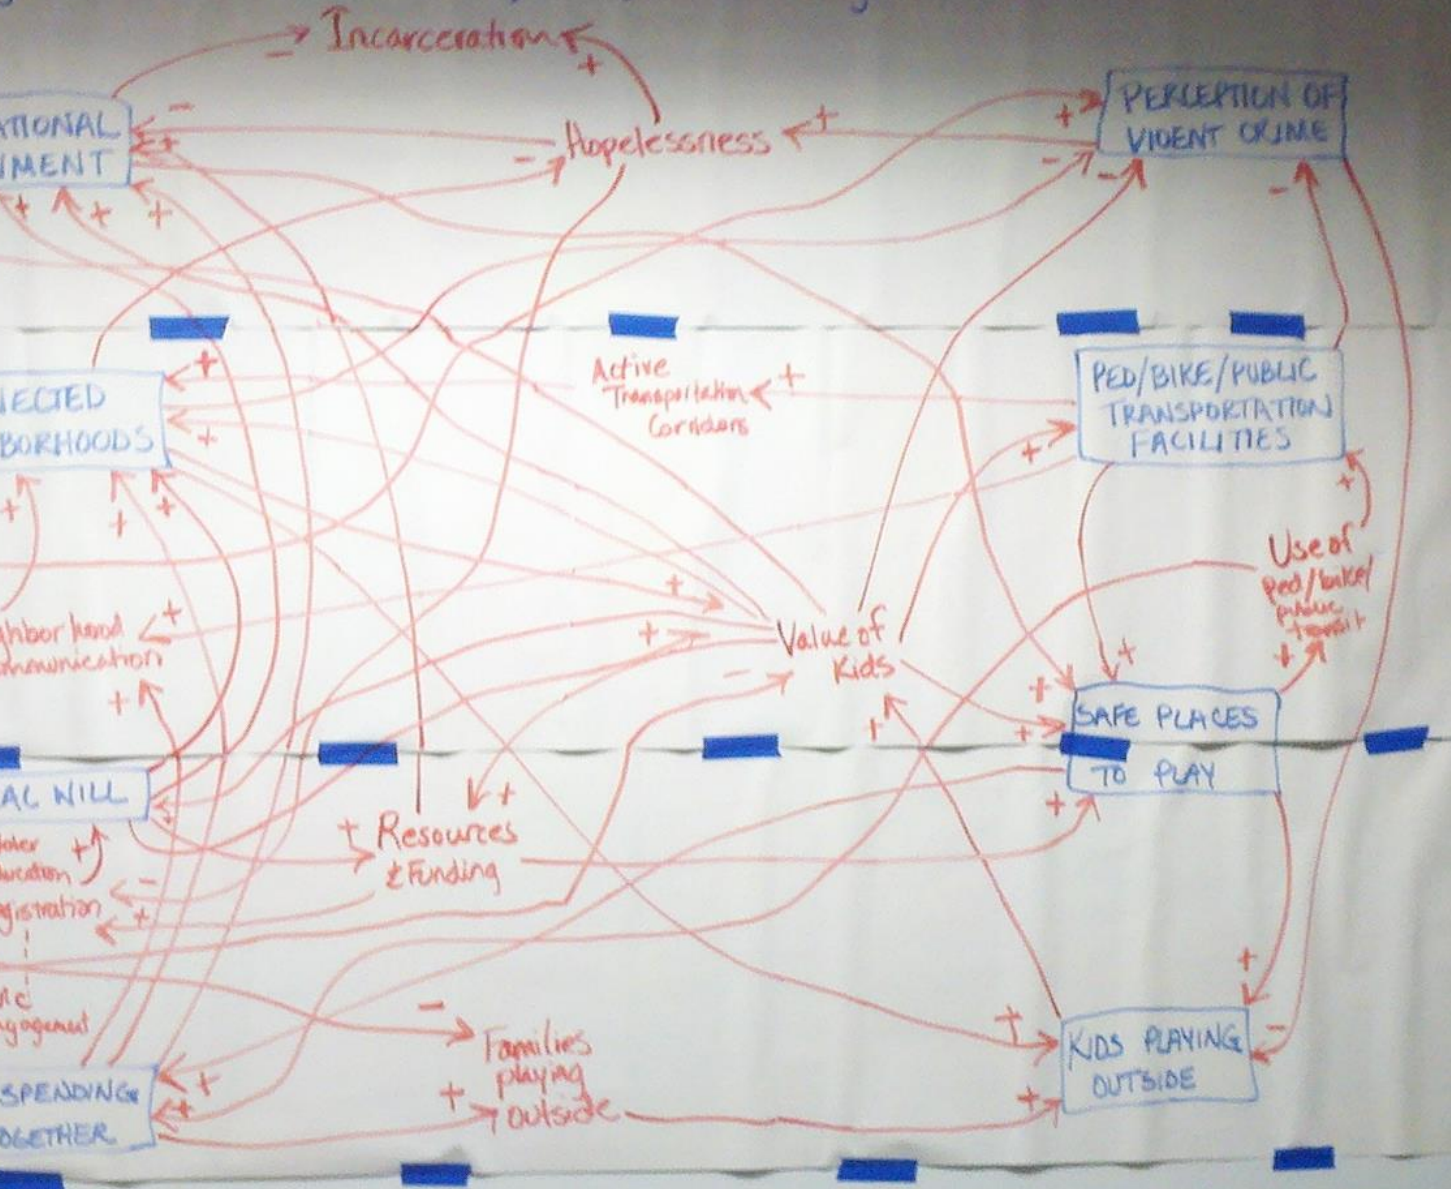 Incarceration
ATIONAL
NMENT
Hopelessness
PERCEPTION OF
VIOENT CRIME
NECTED
BORHOODS
Active
Transportation
Corridors
PED/BIKE/PUBLIC
TRANSPORTATION
FACILITIES
Use of
Ped/bike/
public
transit
ghborhood
mmunication
Value of
Kids
SAFE PLACES
TO PLAY
AL WILL
Resources
& Funding
oter
ducation
gistration
ngagement
SPENDING
OGETHER
Families
playing
outside
KIDS PLAYING
OUTSIDE